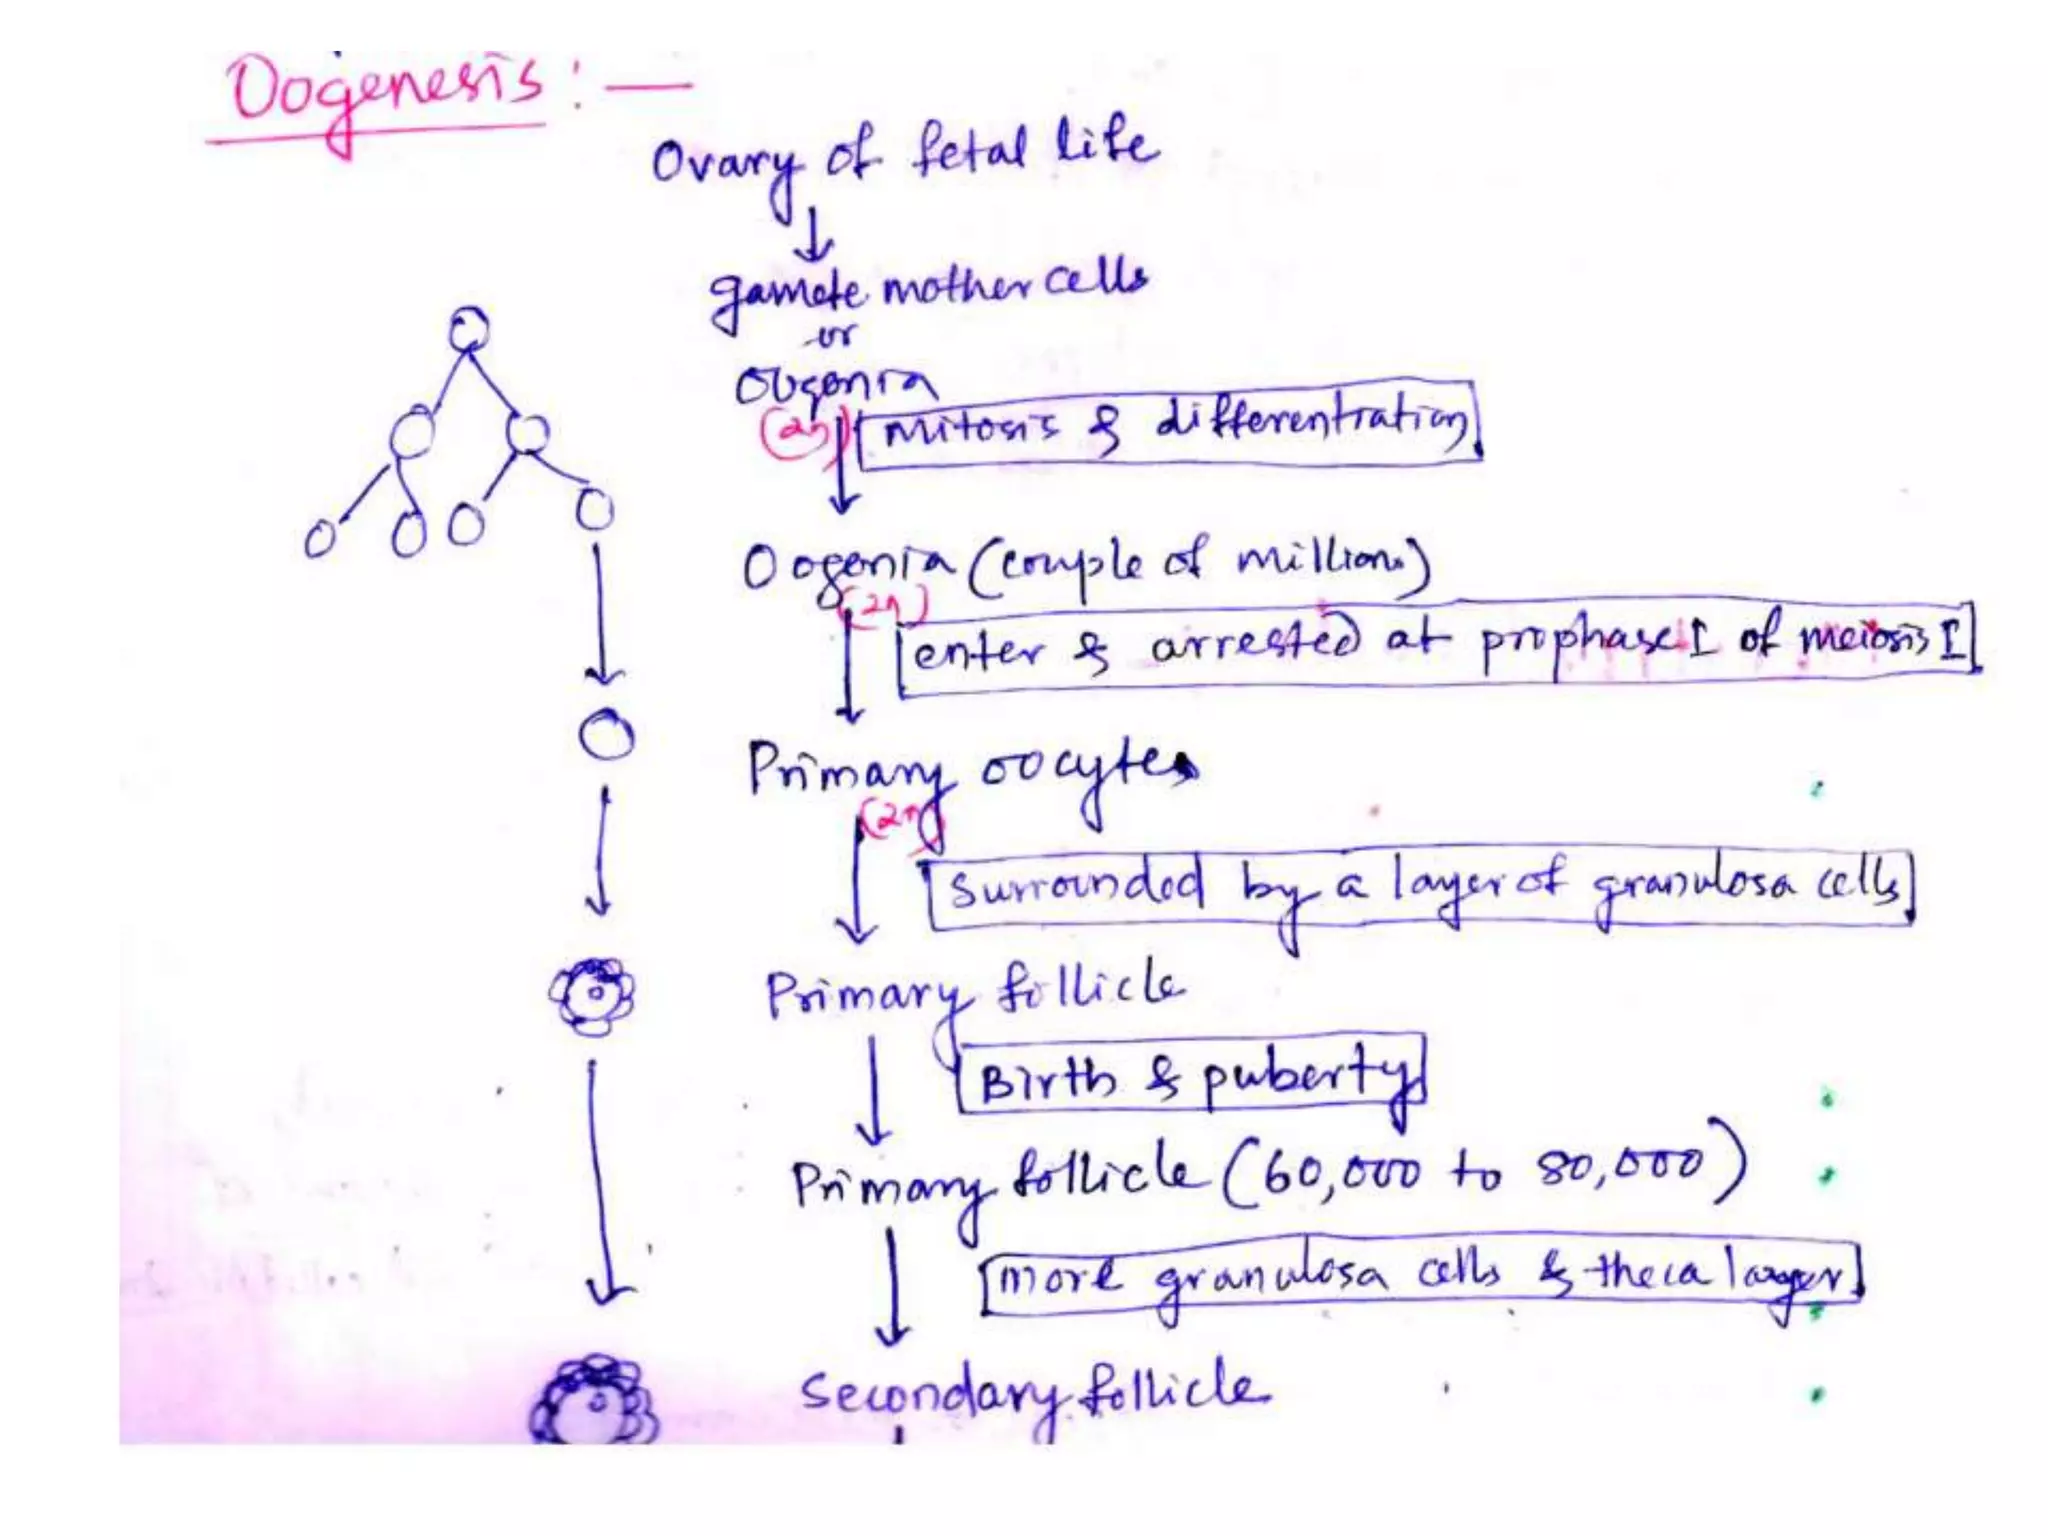 Oogenesis : —
Ovary of fetal life
gamete mother cells
or
Oogonia
(2n) mitosis & differentiation
Oogonia (couple of millions)
(2n)
enter & arrested at prophase I of meiosis I
Primary oocytes
(2n)
Surrounded by a layer of granulosa cells
Primary follicle
Birth & puberty
Primary follicle (60,000 to 80,000)
more granulosa cells & theca layer
Secondary follicle